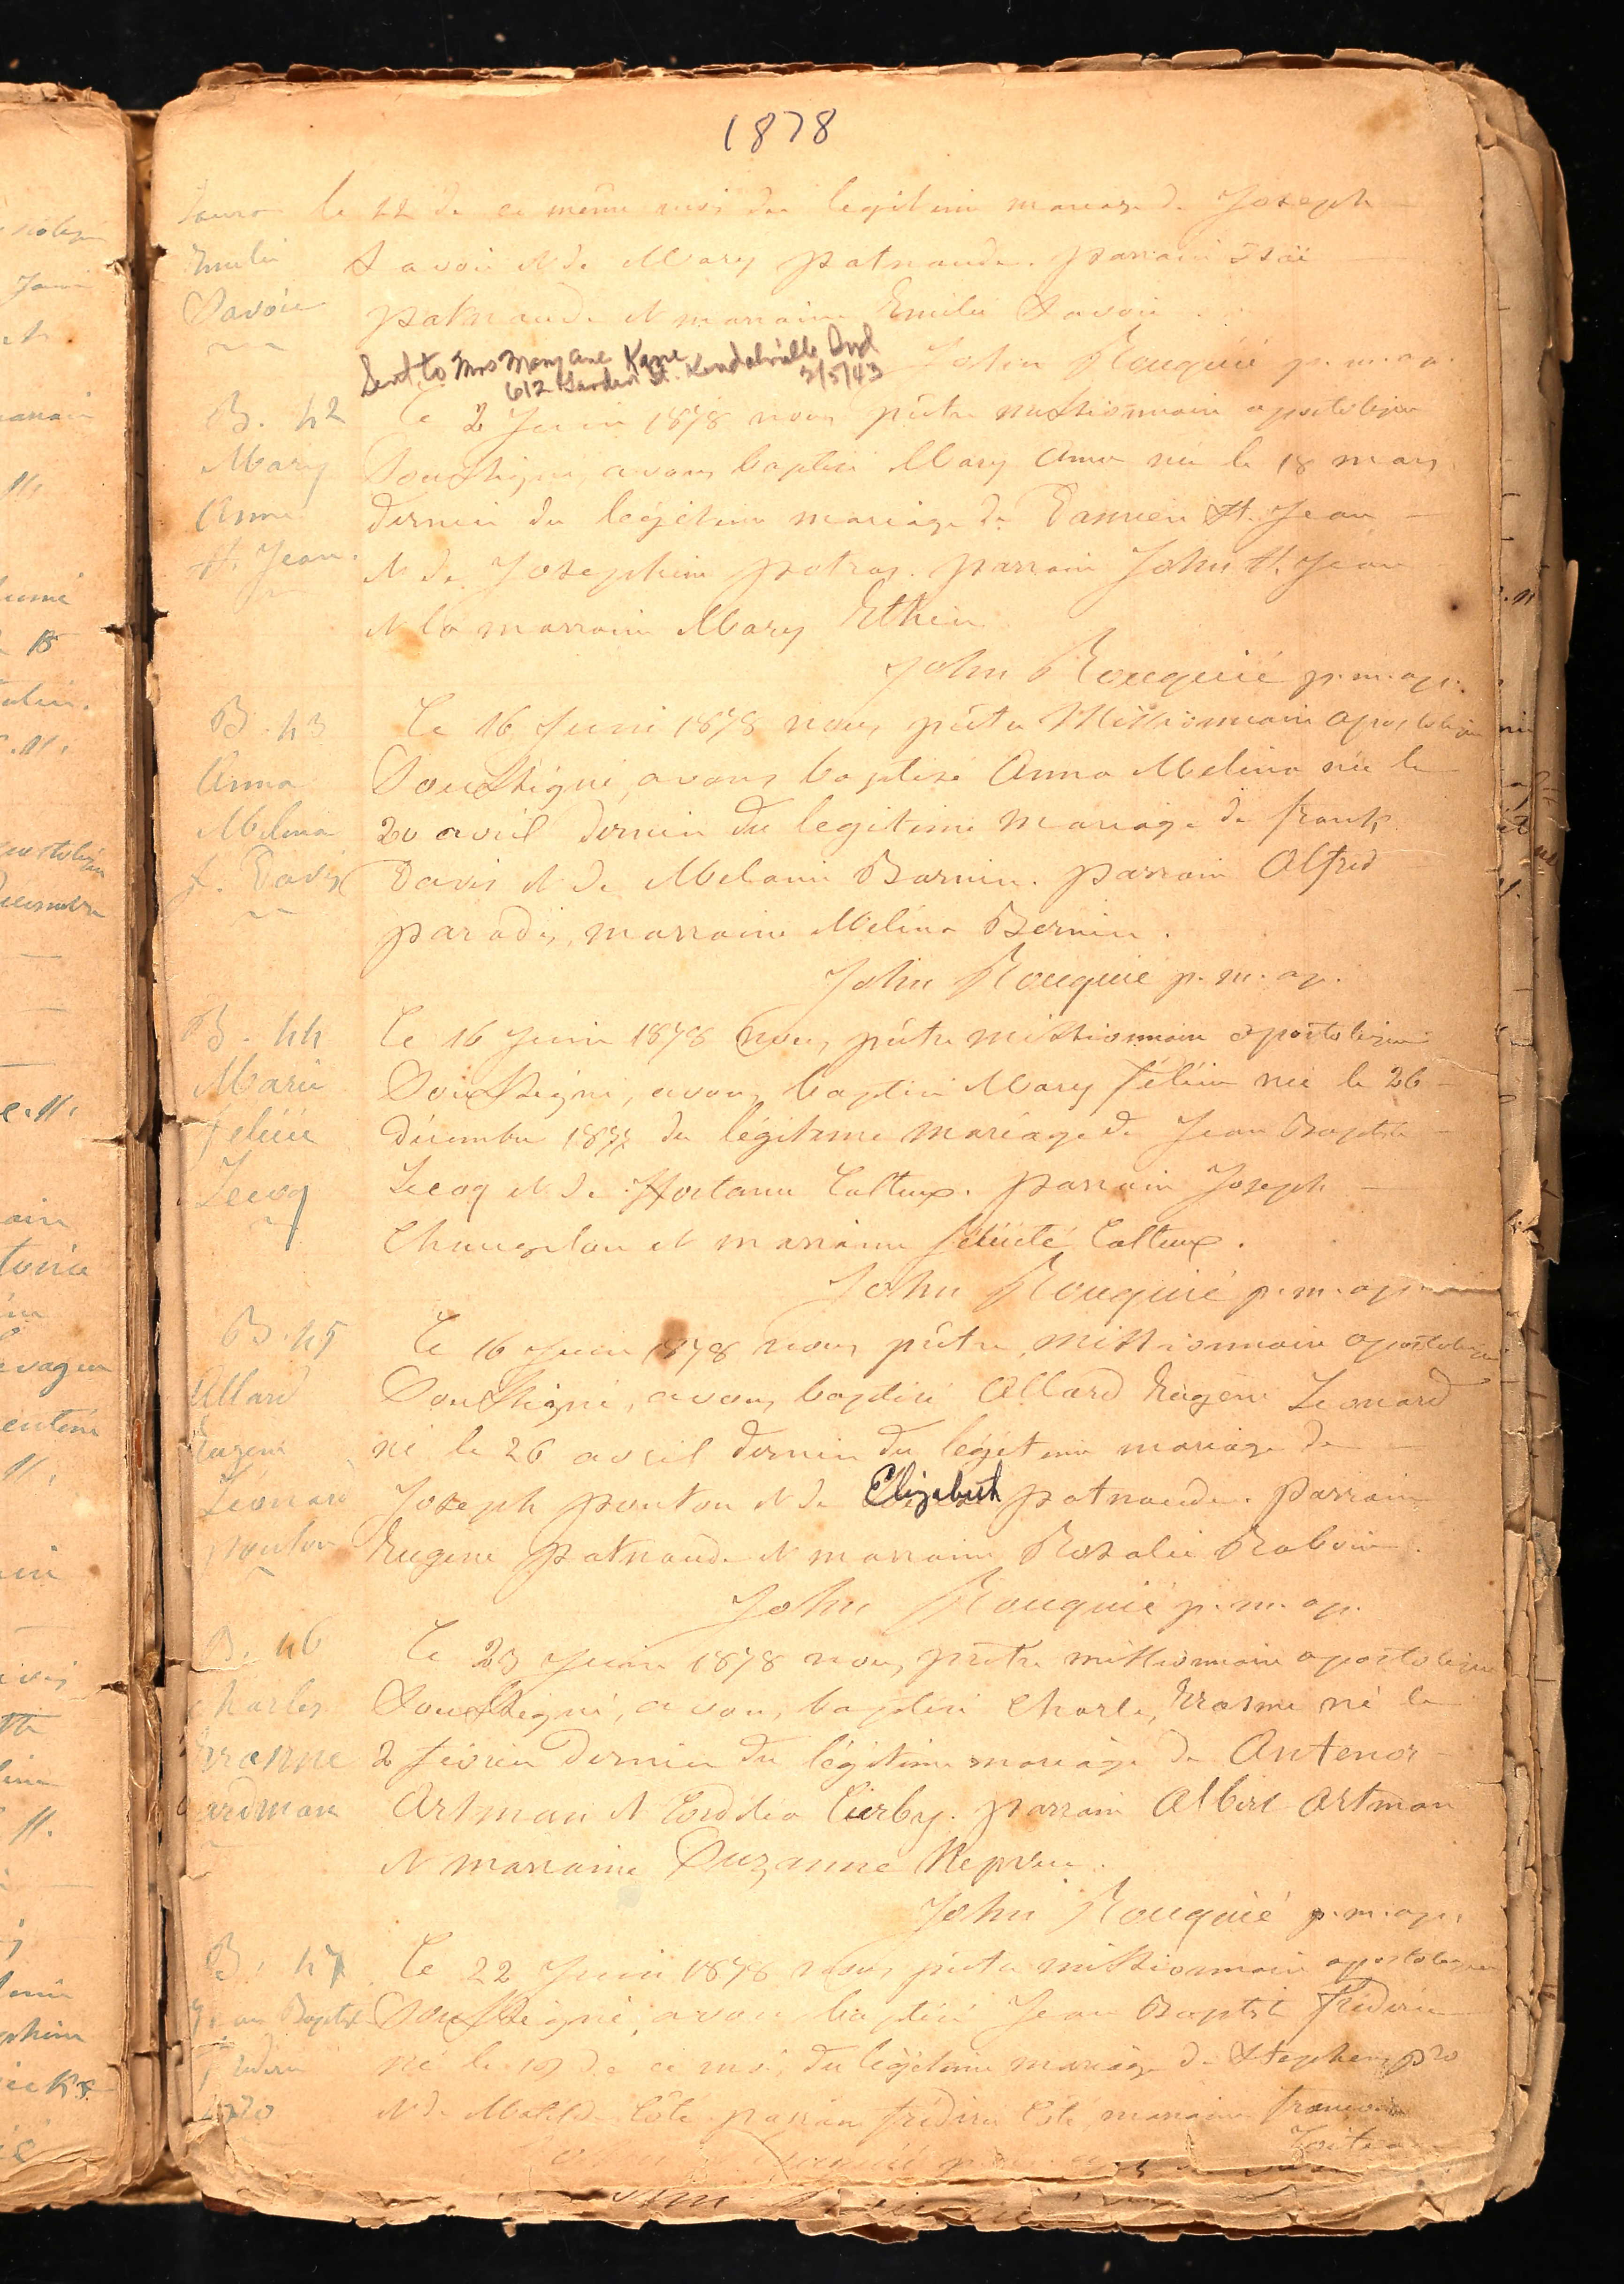 1878
le 22 de ce même mois du legitime mariage de Joseph
Emilie
Savoie et de Mary patnaude. parrain Isaï
Savoie
patnaude et marraine Emilie Savoie
John Rouquié p. m. ap.
Sent to Mrs Mary Ane Kane Kendalville Ind
612 Garden St. 3/5/43
B. 42
Le 2 Juin 1878 nous prêtre missionnaire apostolique
Mary
Soussigné, avons baptisé Mary Anna née le 18 mars
Anna
dernier du légitime mariage de Damien St. Jean
St. Jean
et de Josephine patras. parrain John St. Jean
et la marraine Mary Ethier
John Rouquié p. m. ap.
B. 43
Le 16 Juin 1878 nous prêtre Missionnaire apostolique
Anna
Soussigné, avons baptisé Anna Melina née le
Melina
20 avril dernier du legitime mariage de frank
f. Davis
Davis et de Melanie Barnier. parrain Alfred
paradis, marraine Melina Bernier.
John Rouquié p. m. ap.
B. 44
Le 16 Juin 1878 nous, prêtre missionnaire apostolique
Marie
Soussigné, avons baptisé Mary félicie née le 26
félicie
décembre 1877 du légitime mariage de Jean Baptiste
Lecoq
Lecoq et de Hortanse Calteux. parrain Joseph
et marraine félicité Calteux.
John Rouquié p. m. ap.
B. 45
Le 16 Juin 1878 nous prêtre, missionnaire apostolique
Allard
Soussigné, avons baptisé Allard Eugène Leonard
Eugene
né le 26 avril dernier du légitime mariage de
Léonard
Joseph ponton et de Elizabeth patnaude. parrain
ponton
Eugene patnaude et marraine Rosalie Raboin.
John Rouquié p. m. ap.
B. 46
Le 23 Juin 1878 nous, prêtre missionnaire apostolique
Charles
Soussigné, avons baptisé Charles Erasme né le
Erasme
2 février dernier du légitime mariage de Antenor
ardman
Artman et Cirby. parrain Albert Artman
et marraine Suzanne
John Rouquié p. m. ap.
B. 47
Le 22 Juin 1878 nous prêtre missionnaire apostolique
Jean Baptiste
Soussigné, avons baptisé Jean Baptiste frédéric
né le de ce mois du légitime mariage de Stephen pro
et de Matilde Côté parrain frédéric Coté marraine